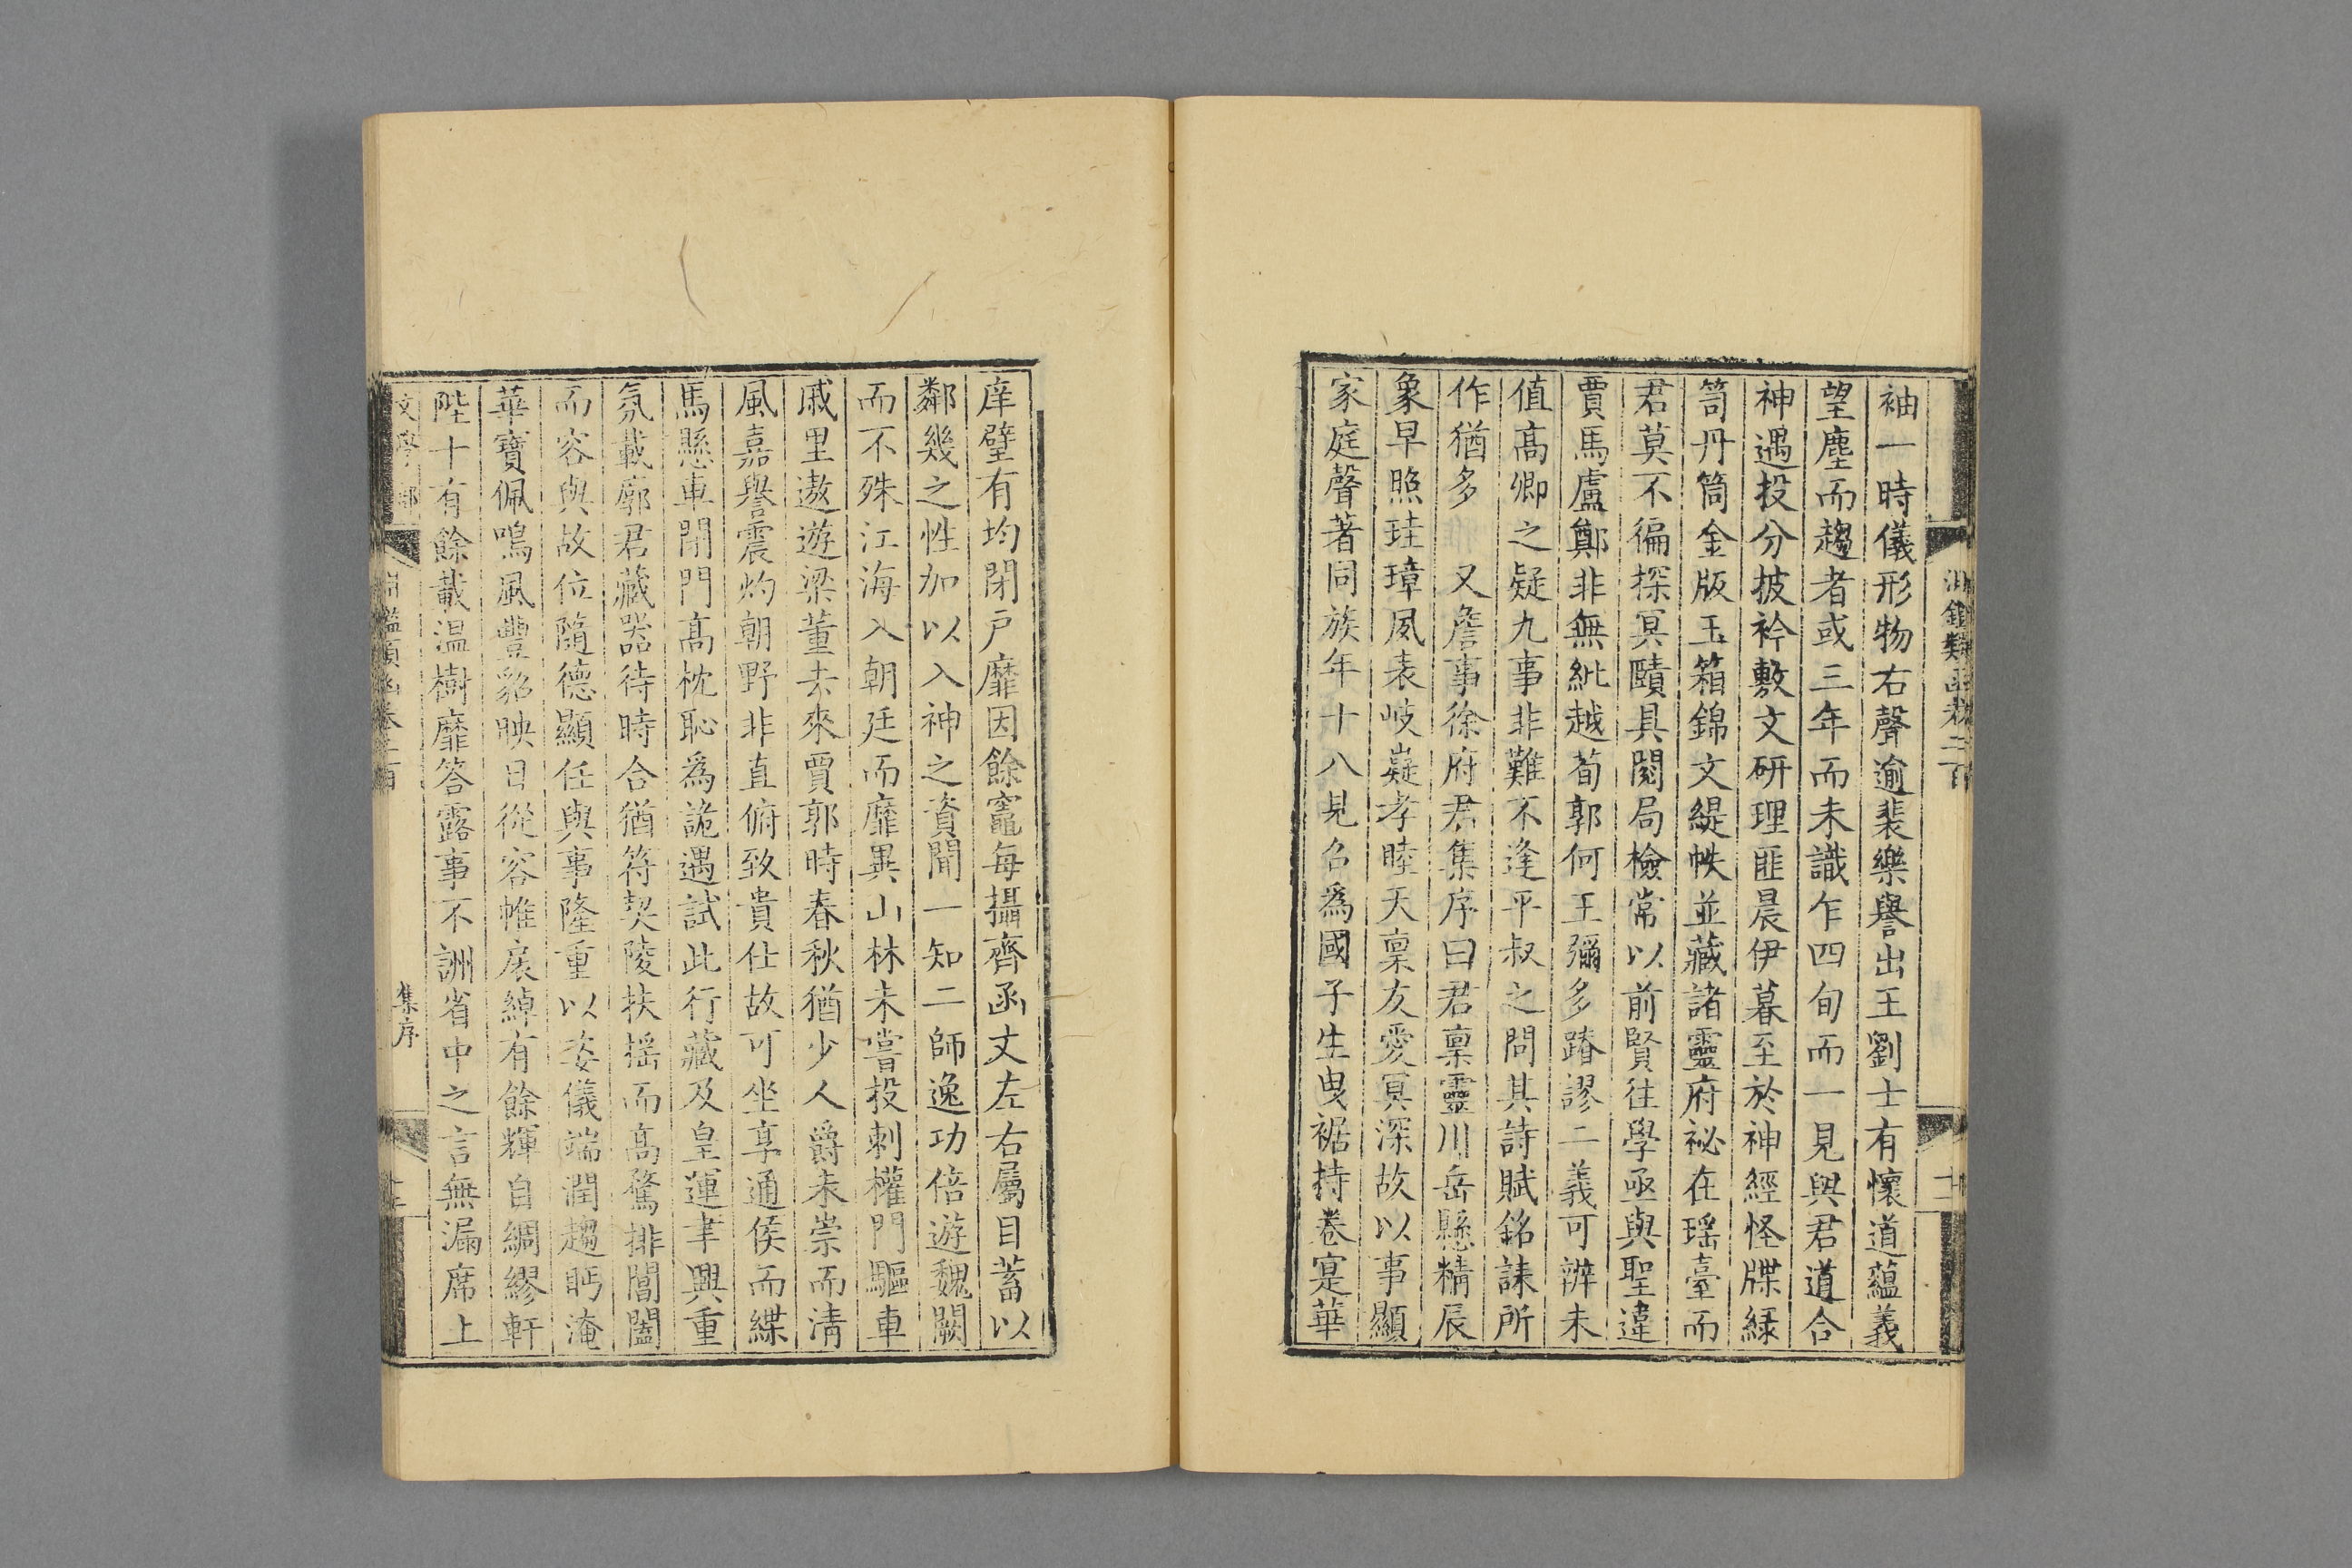 淵鑑類函卷二百
十二
袖一時儀形物右聲逾裴樂譽出王劉士有懷道蘊義
望塵而趨者或三年而未識乍四旬而一見與君道合
神遇投分披衿敷文研理匪晨伊暮至於神經怪牒緑
笥丹筒金版玉箱錦文緹帙並藏諸靈府祕在瑶臺而
君莫不徧探冥賾具閱局檢常以前賢往學亟與聖違
賈馬盧鄭非無紕越荀郭何王彌多踳謬二義可辨未
值高卿之疑九事非難不逢平叔之問其詩賦銘誄所
作猶多 又詹事徐府君集序曰君稟靈川岳懸精辰
象早照珪璋夙表岐嶷孝睦天稟友愛冥深故以事顯
家庭聲著同族年十八見召為國子生曳裾持卷寔華
庠璧有均閉戶靡因餘竈每攝齊函丈左右屬目蓄以
鄰幾之性加以入神之資聞一知二師逸功倍遊魏闕
而不殊江海入朝廷而靡異山林未嘗投刺權門驅車
戚里遨遊梁董去來賈郭時春秋猶少人爵未崇而清
風嘉譽震灼朝野非直俯致貴仕故可坐享通侯而緤
馬懸車閉門高枕恥爲詭遇試此行藏及皇運聿興重
氛載廓君藏器待時合猶符契陵扶摇而高騖排閶闔
而容與故位隨德顯任與事隆重以姿儀端潤趨眄淹
華寶佩鳴風豐貂映日從容帷扆綽有餘輝自綢繆軒
陛十有餘載温樹靡答露事不詶省中之言無漏席上
文學部
淵鑑類函卷二百
集序